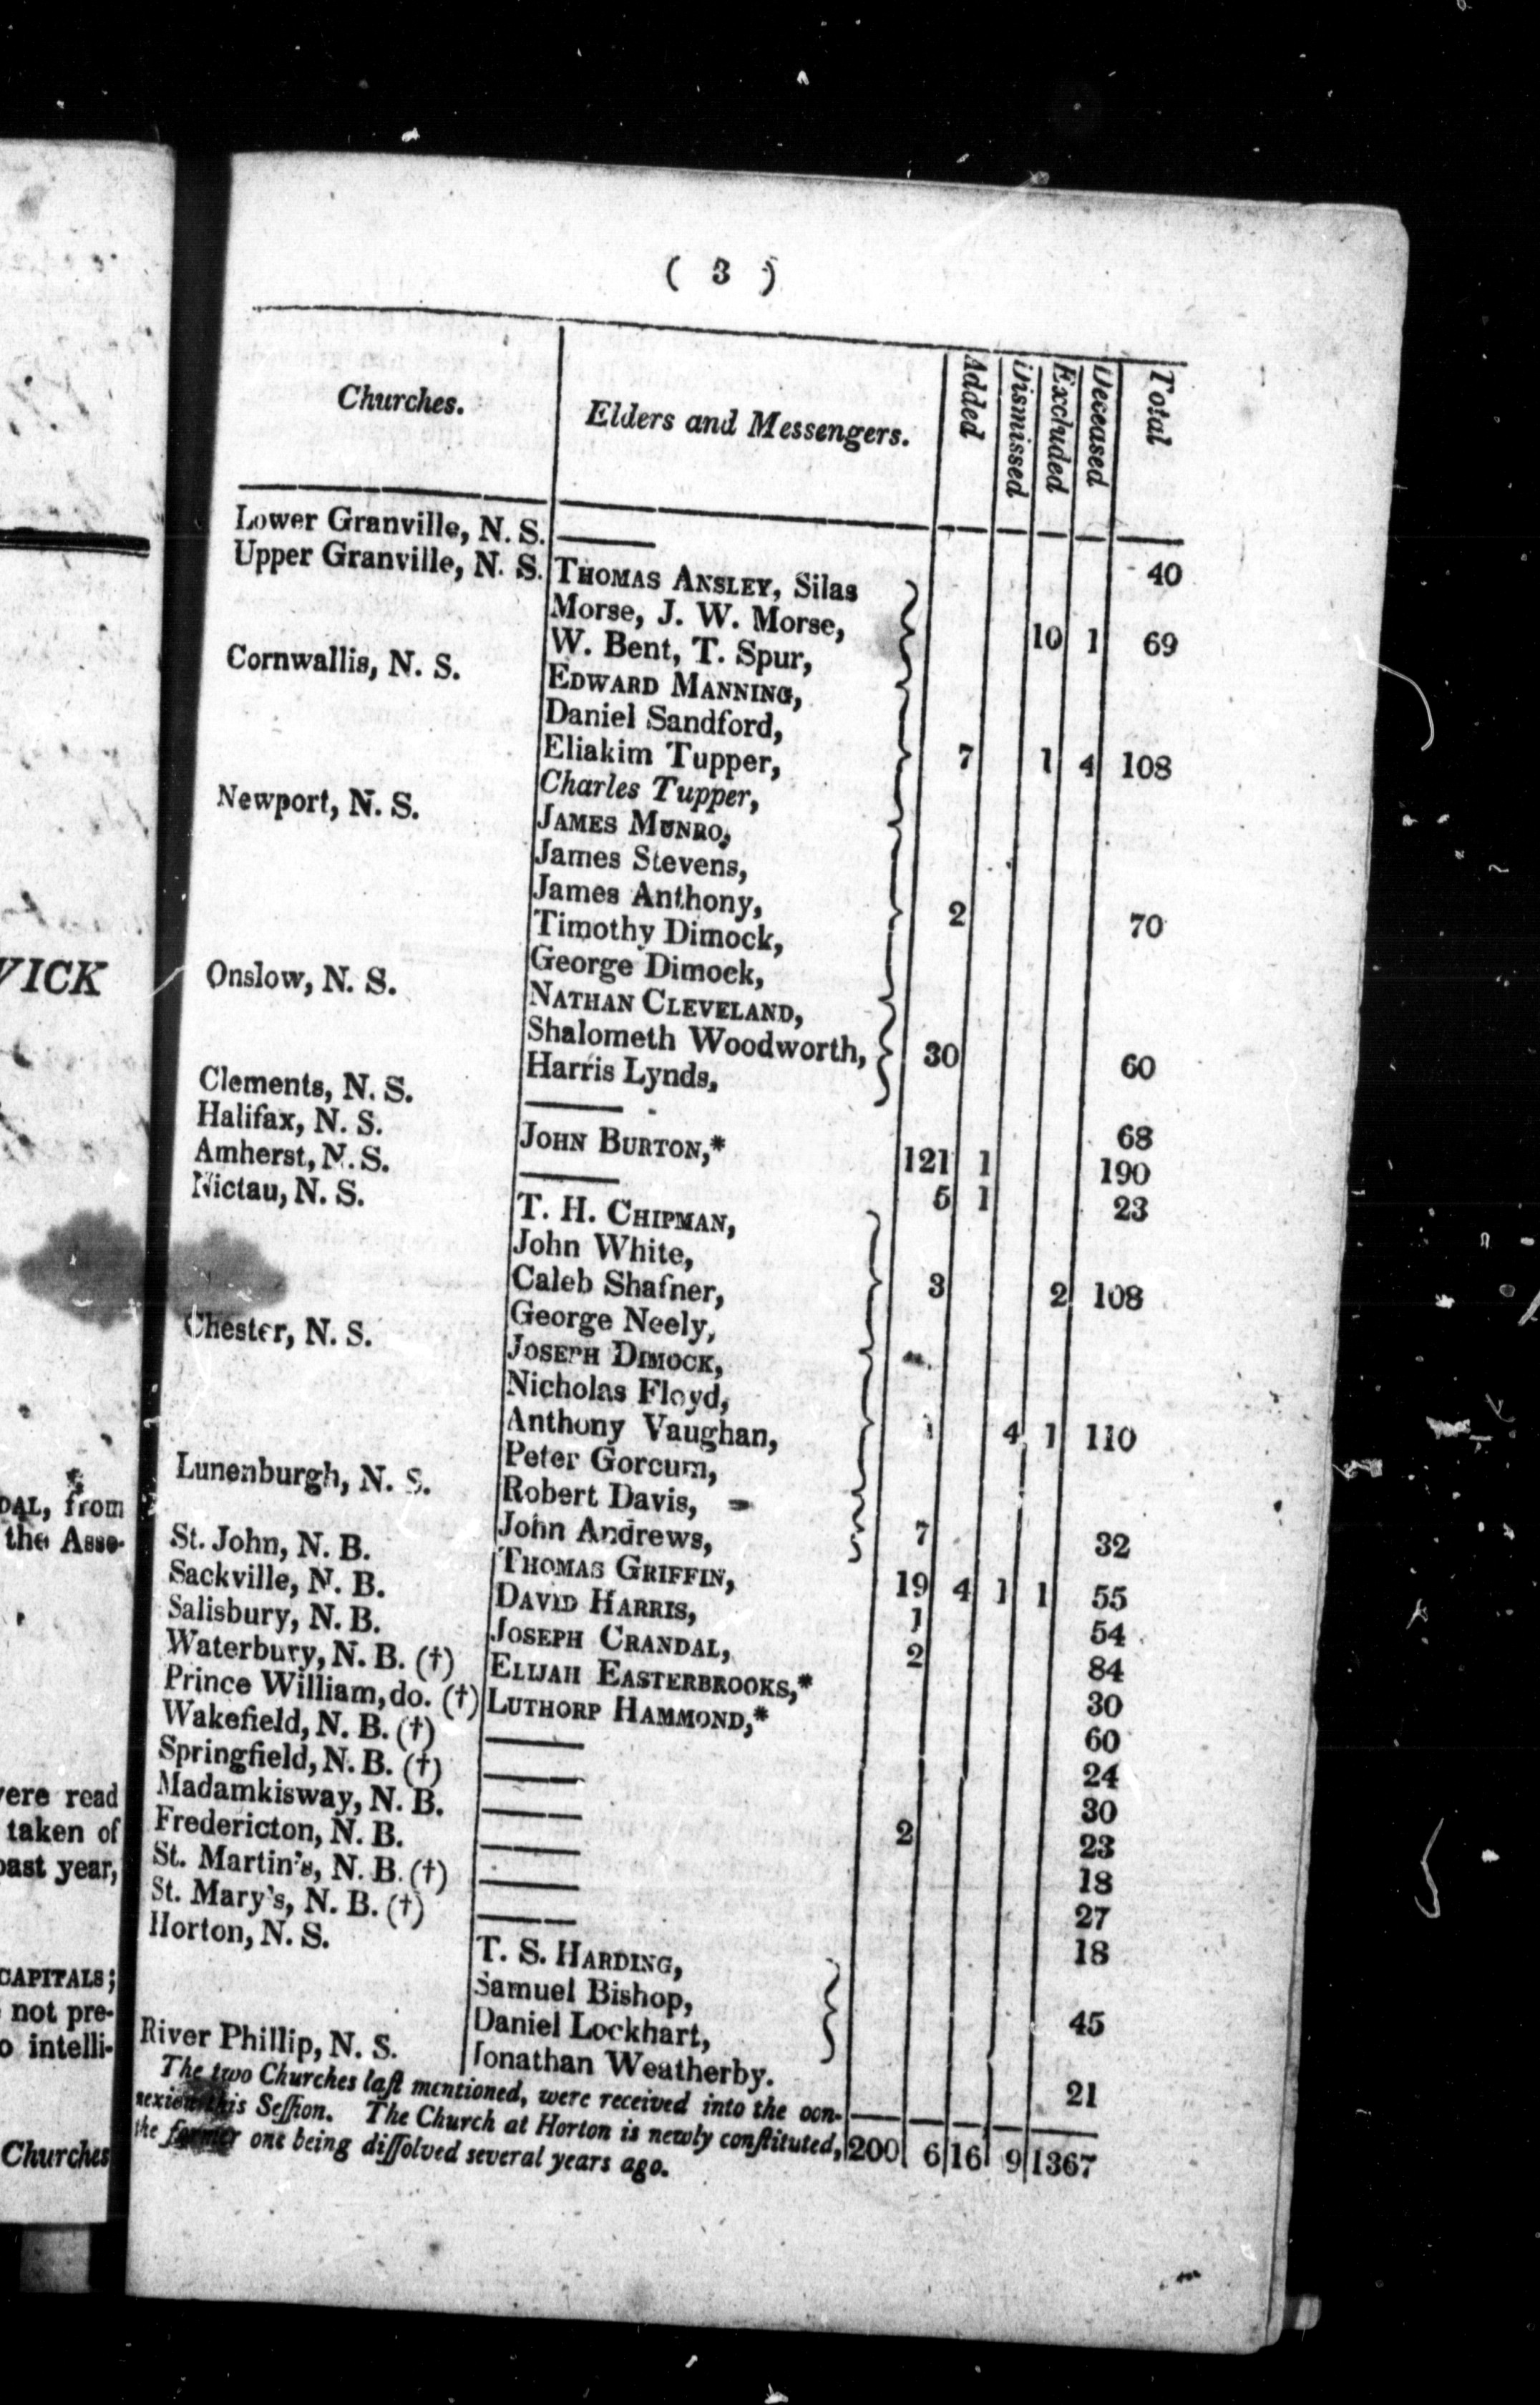 ( 3 )
Churches. Elders and Messengers. Added Dismissed Excluded Deceased Total
Lower Granville, N. S. —— 40
Upper Granville, N. S. THOMAS ANSLEY, Silas
Morse, J. W. Morse, 10 1 69
W. Bent, T. Spur,
Cornwallis, N. S. EDWARD MANNING,
Daniel Sandford,
Eliakim Tupper, 7 1 4 108
Charles Tupper,
Newport, N. S. JAMES MUNRO,
James Stevens,
James Anthony, 2 70
Timothy Dimock,
George Dimock,
Onslow, N. S. NATHAN CLEVELAND,
Shalometh Woodworth, 30 60
Harris Lynds,
Clements, N. S. —— 68
Halifax, N. S. JOHN BURTON,* 121 1 190
Amherst, N. S. —— 5 1 23
Nictau, N. S. T. H. CHIPMAN,
John White,
Caleb Shafner, 3 2 108
George Neely,
Chester, N. S. JOSEPH DIMOCK,
Nicholas Floyd,
Anthony Vaughan, 1 4 1 110
Peter Gorcum,
Lunenburgh, N. S. Robert Davis,
John Andrews, 7 32
St. John, N. B. THOMAS GRIFFIN, 19 4 1 1 55
Sackville, N. B. DAVID HARRIS, 1 54
Salisbury, N. B. JOSEPH CRANDAL, 2 84
Waterbury, N. B. (†) ELIJAH EASTERBROOKS,* 30
Prince William, do. (†) LUTHORP HAMMOND,* 60
Wakefield, N. B. (†) —— 24
Springfield, N. B. (†) —— 30
Madamkisway, N. B. —— 2 23
Fredericton, N. B. —— 18
St. Martin's, N. B. (†) —— 27
St. Mary's, N. B. (†) —— 18
Horton, N. S. T. S. HARDING,
Samuel Bishop, 45
Daniel Lockhart,
River Phillip, N. S. Jonathan Weatherby. 21
The two Churches last mentioned, were received into the con-
nexion this Session. The Church at Horton is newly constituted,
the former one being dissolved several years ago.
200 6 16 9 1367
VICK
DAL, from
the Asso-
were read
taken of
past year,
CAPITALS;
not pre-
o intelli-
Churches